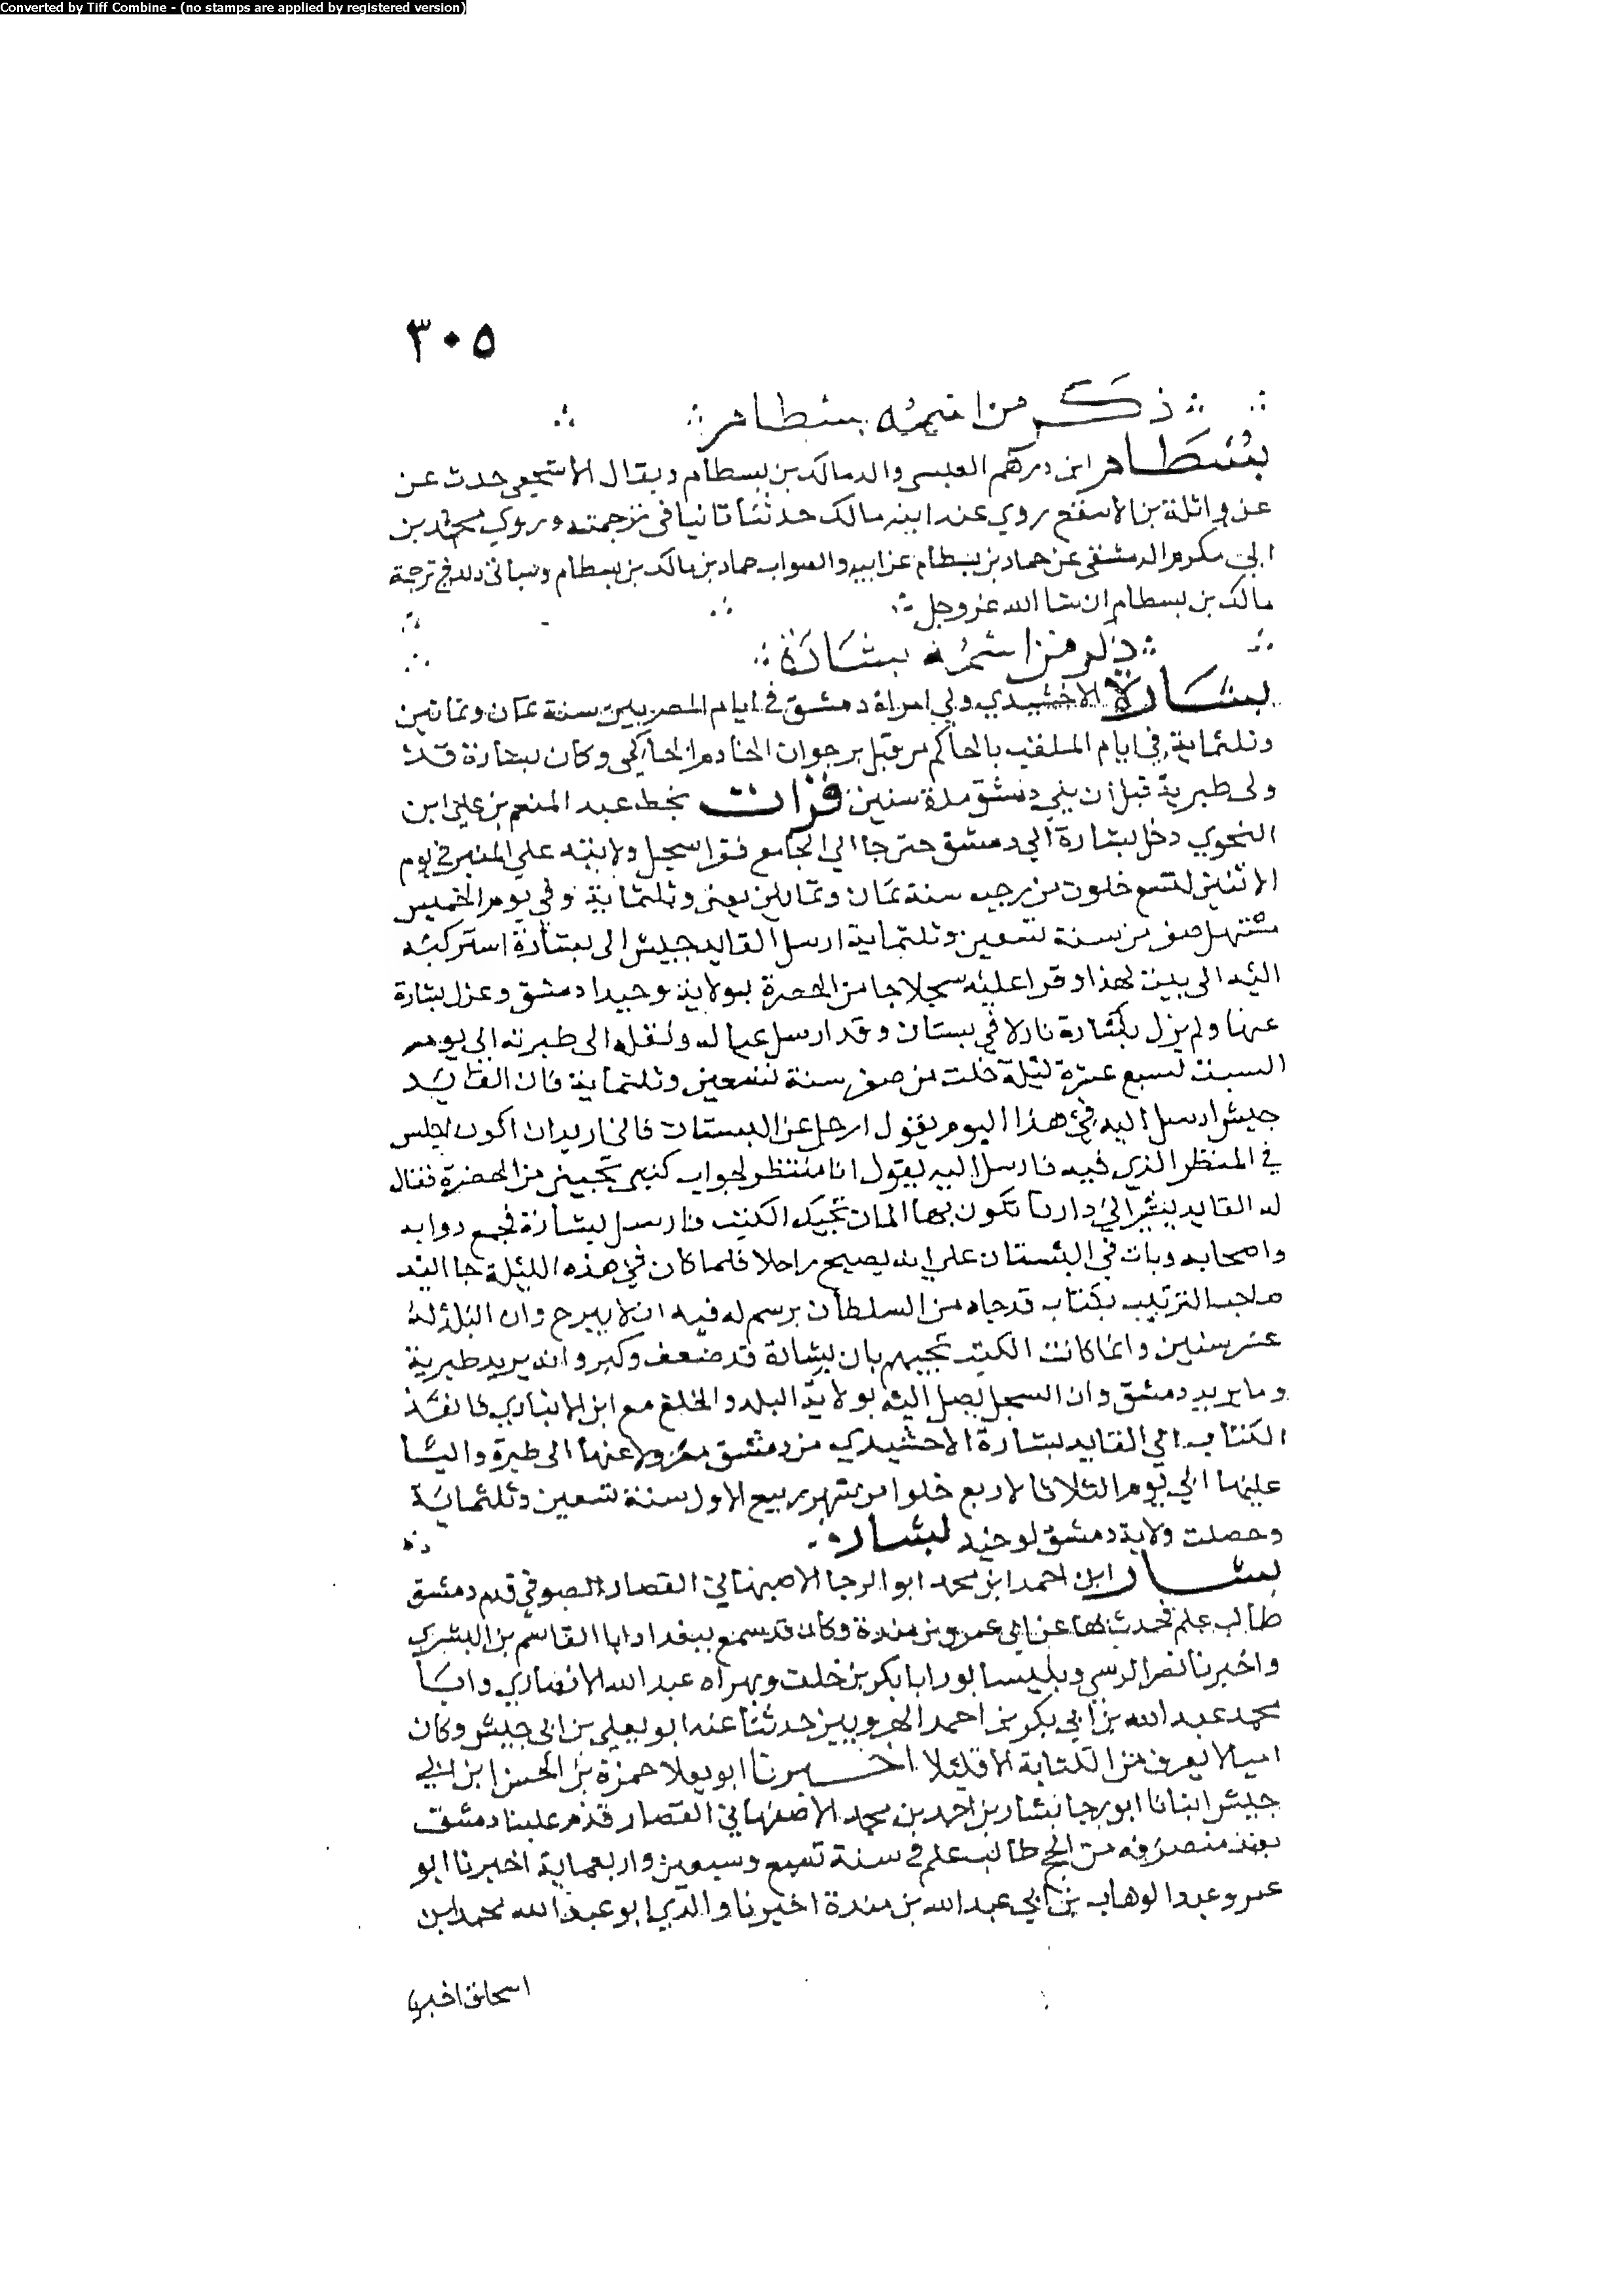 Converted by Tiff Combine - (no stamps are applied by registered version)
٣٠٥
ذكر من اسمه بسطام
بسطام ابن درهم العبسي والد مالك بن بسطام ويقال الاشجعي حدث عن
عن واثلة بن الاسقع روي عنه ابنه مالك حدثنا تانيا في ترجمته وروي محمد بن
ابي مكرم الدمشقي عن حماد بن بسطام عن ابيه والصواب حماد بن مالك بن بسطام وسياتي ذلك في ترجمة
مالك بن بسطام ان شا الله عز وجل
ذكر من اسمه بشارة
بشارة الاخشيدي ولي امراة دمشق في ايام المصريين سنة ثمان وثمانين
وثلثماية في ايام الملقب بالحاكم من قبل برجوان الخادم الحاكمي وكان بشارة قد
ولى طبرية قبل ان يلي دمشق مدة سنين قرات بخط عبد المنعم بن علي ابن
النحوي دخل بشارة الي دمشق حتي جا الي الجامع فقرا سجل ولايته علي المنبر في يوم
الاثنين لتسع خلون من رجب سنة ثمان وثمانين وثلثماية وفي يوم الخميس
مستهل صفر من سنة تسعين وثلثماية ارسل القايد جيش الى بشارة استركبه
اليه الى بيت لهذا وقرا عليه سجلا جا من الحضرة بولاية وحيدا دمشق وعزل بشارة
عنها ولم يزل بشارة نازلا في بستان وقد ارسل عياله وثقله الى طبرية الى يوم
السبت لسبع عشرة ليلة خلت من صفر سنة تسعين وثلثماية فان القايد
جيش ارسل اليه في هذا اليوم يقول ارحل عن البستان فاني اريد ان اكون اجلس
في المنظر الذي فيه فارسل اليه يقول انا منتظر لجواب كتبي تجيني من الحضرة فقال
له القايد بشير الي دارنا تكون بها الى ان تجيك الكتب فارسل بشارة فجمع دوابه
واصحابه وبات في البستان علي انه يصبح راحلا فلما كان في هذه الليلة جا اليه
صاحب الترتيب بكتاب قد جاه من السلطان برسم له فيه ان لا يبرح وان البلد له
عشر سنين وانما كانت الكتب تجيهم بان بشارة قد ضعف وكبر وانه يريد طبرية
وما يريد دمشق وان السجل يصل اليه بولاية البلد والخلع مع ابن الانباري فانفذ
الكتاب الي القايد بشارة الاخشيدي من دمشق معزولا عنها الى طبرية واليا
عليها الي يوم الثلاثا لاربع خلوا من شهر ربيع الاول سنة تسعين وثلثماية
وحصلت ولاية دمشق لوحيد بشار
بشار ابن احمد ابن محمد ابو الرجا الاصبهاني القصار الصوفي قدم دمشق
طالب علم فحدث بها عن ابي عمرو بن مندة وكان قد سمع ببغداد ابا القاسم بن البشري
واخبرنا نصر الرسي وبنيسابور ابا بكر بن خلت وبهراه عبد الله الانصاري وابا
محمد عبد الله بن ابي بكر بن احمد الهرويين حدثنا عنه ابو يعلي بن ابي جيش وكان
اميا لا يعرف من الكتابة الا قليلا اخبرنا ابو يعلا حمزة بن الحسن ابن ابي
جيش ابنانا ابو رجا بشار بن احمد بن محمد الاصفهاني القصار قدم علينا دمشق
بعد منصرفه من الحج طالب علم في سنة تسع وسبعين واربعماية اخبرنا ابو
عمرو عبد الوهاب بن ابي عبد الله بن مندة اخبرنا والدي ابو عبد الله محمد ابن
اسحاق اخبرنا